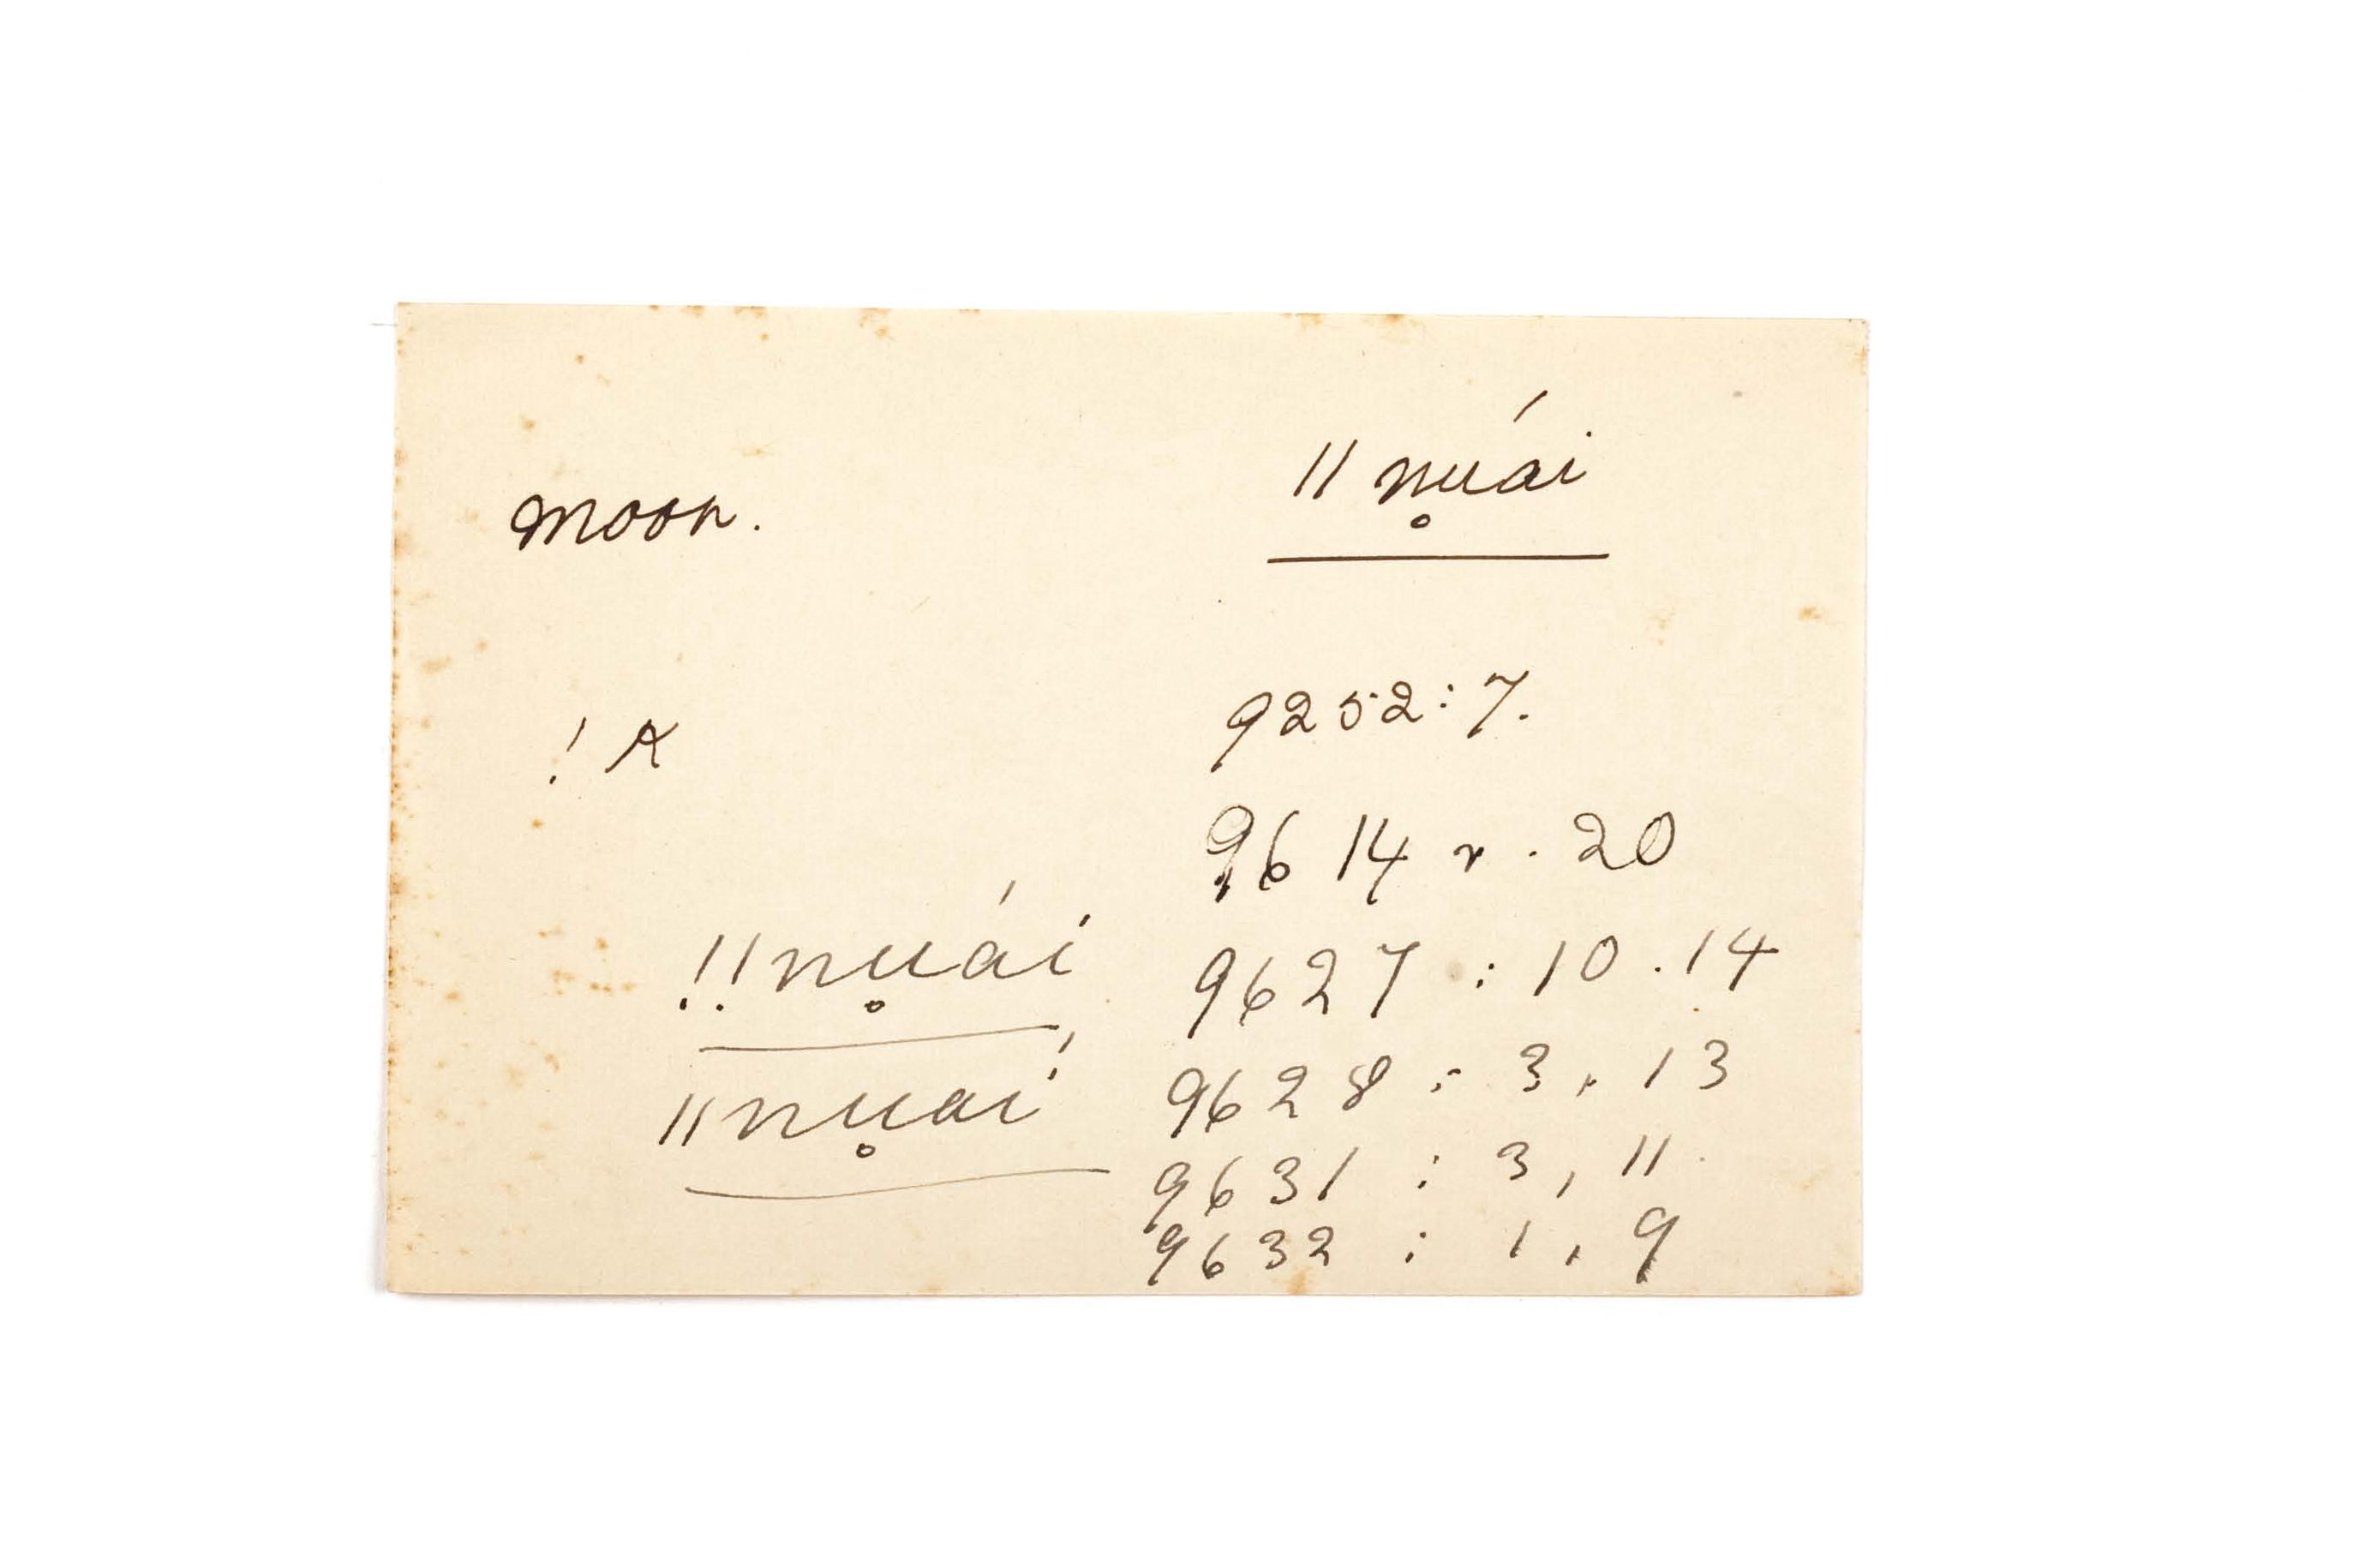 moon.
ǁ nu̥ái
! ʞ
9252:7.
9614 r. 20
!!nu̥ái
9627 : 10.14
ǁnu̥ai
9628 : 3, 13
9631 : 3, 11
9632 : 1, 9